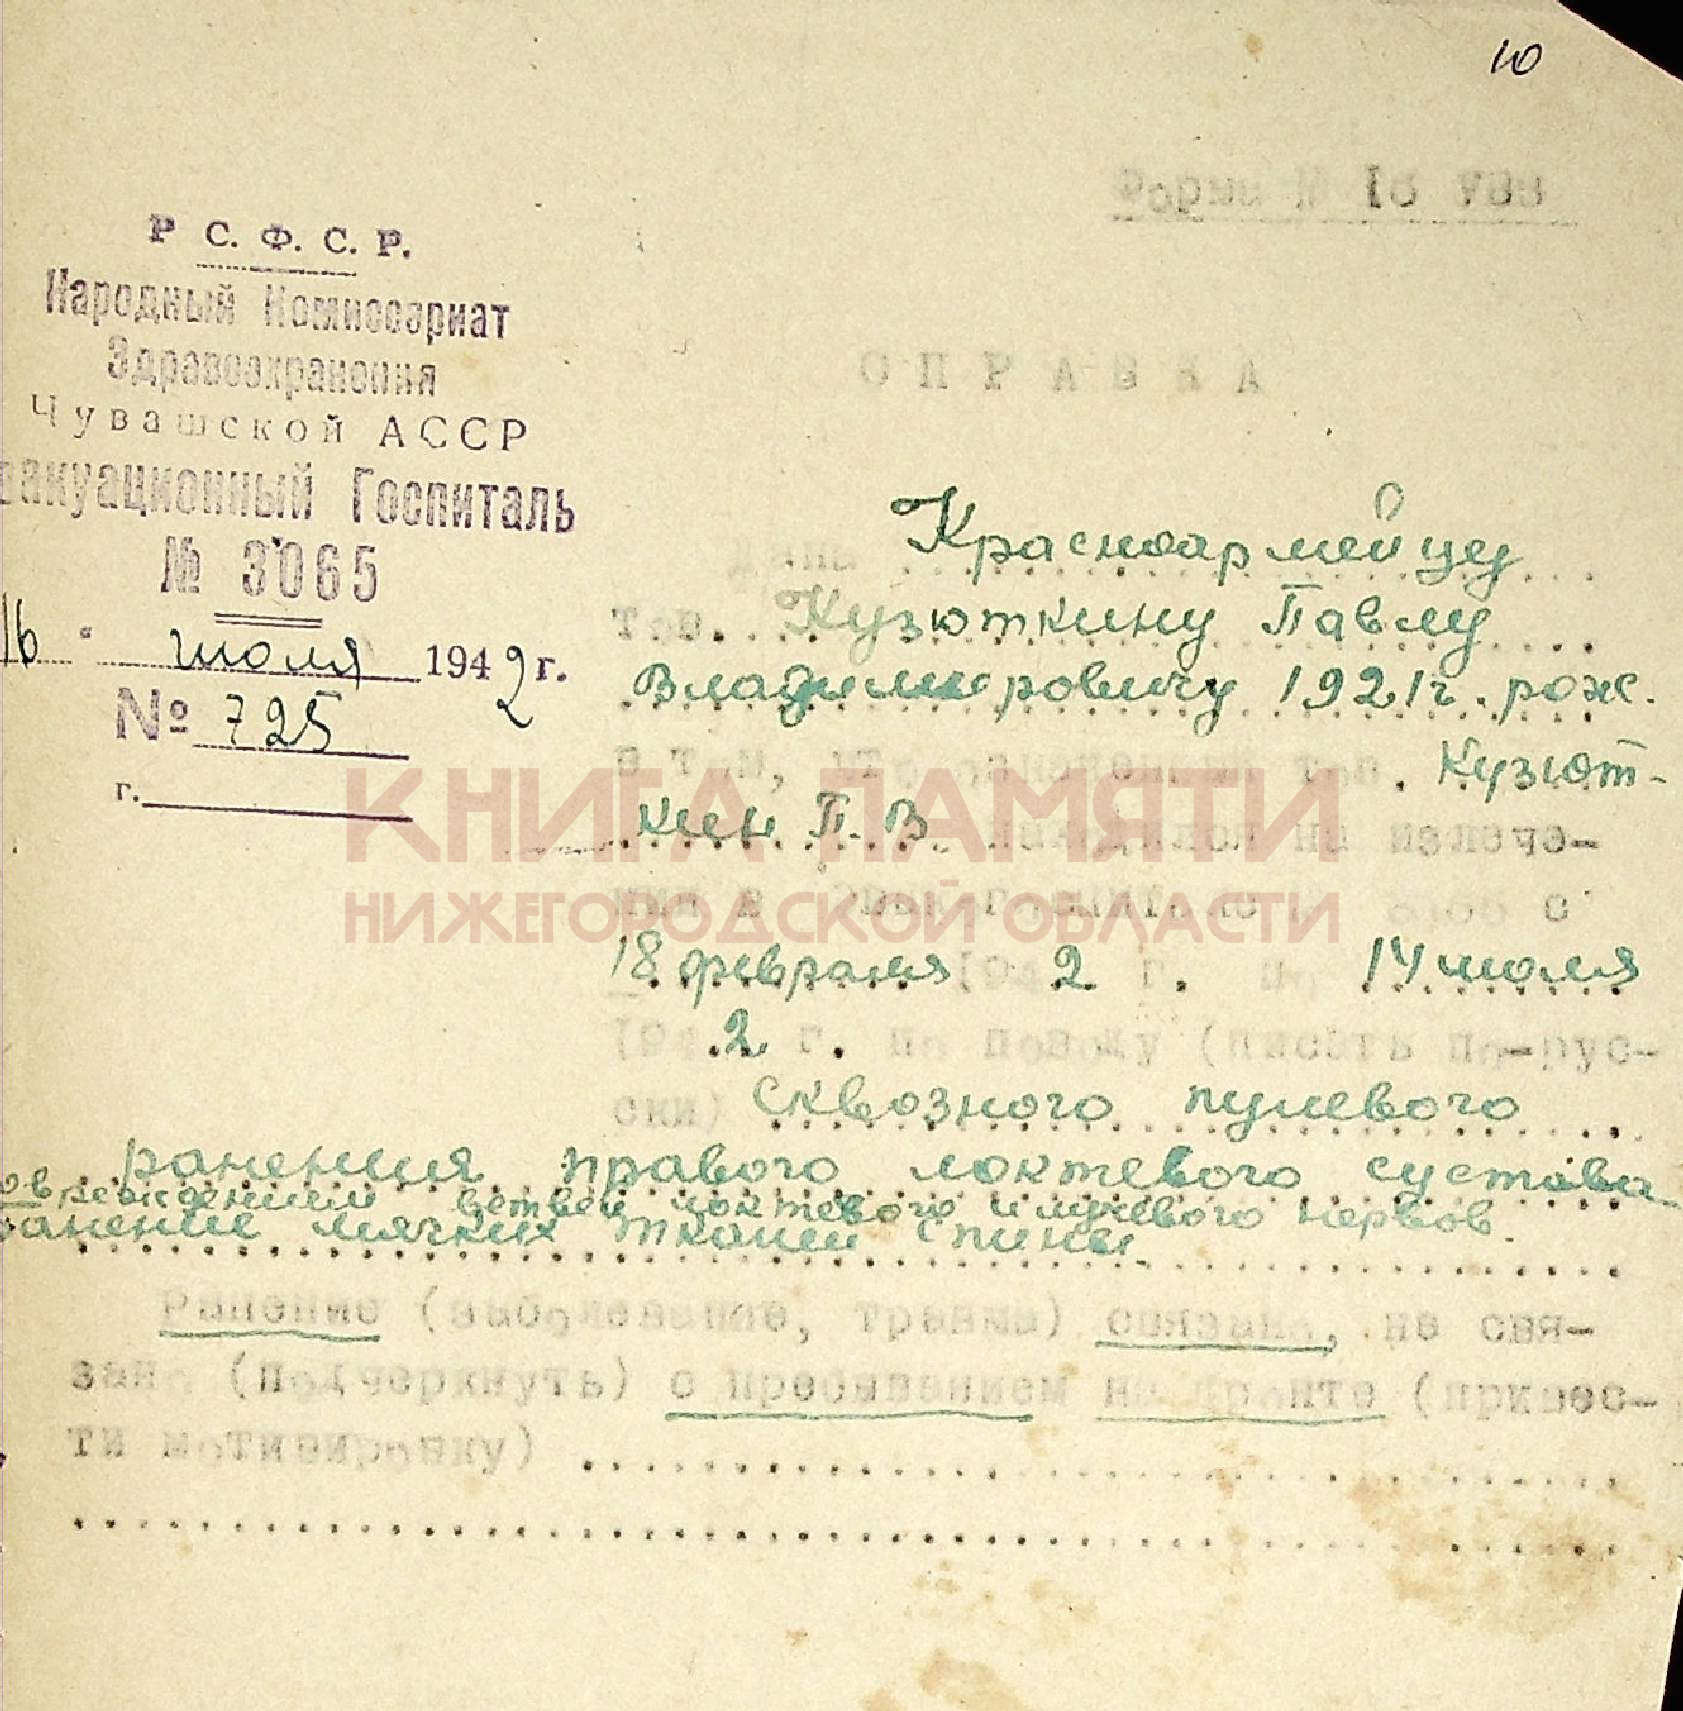 10
Форма № 16
Р С. Ф. С. Р.
Народный Комиссариат
Здравоохранения
Чувашской АССР
вакуационный Госпиталь
№ 3065
16 " июля 1942 г.
№ 725
г.
СПРАВКА
дана Красноармейцу
тов. Кузюткину Павлу
Владимировичу 1921 г. рож.
в том, что означенный тов. Кузют-
кин П. В находился на излече-
нии в Эвакогоспитале № 3065 с
18 февраля 1942 г. по 14 июля
1942 г. по поводу (писать по-рус-
ски) Сквозного пулевого
ранения правого локтевого сустава
овреждением ветвей локтевого и лучевого нервов.
ранение мягких тканей спины.
Ранение (заболевание, травма) связано, не свя-
зано (подчеркнуть) с пребыванием на фронте (привес-
ти мотивировку)
КНИГА ПАМЯТИ
НИЖЕГОРОДСКОЙ ОБЛАСТИ